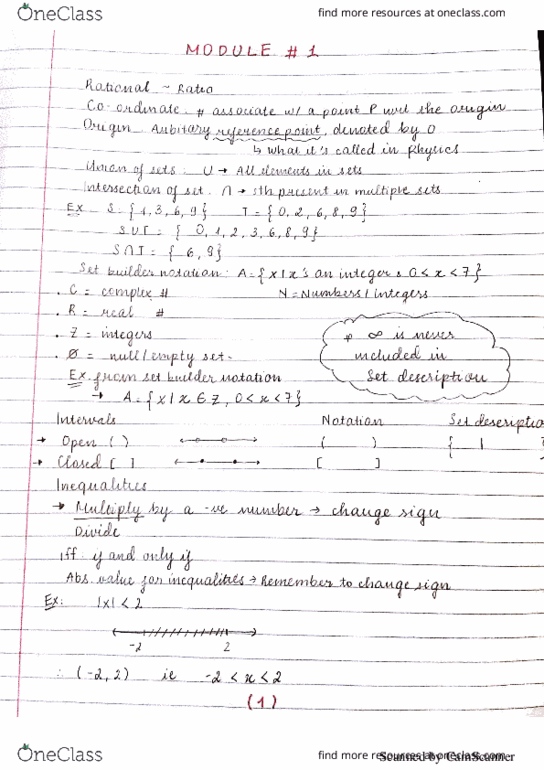 OneClass
find more resources at oneclass.com
MODULE # 1
Rational ~ Ratio
Co-ordinate. # associate w/ a point P wrt the origin
Origin. Arbitary reference point, denoted by O
↳ what it's called in physics
Union of sets: U → All elements in sets
Intersection of set. ∩ → sth present in multiple sets
Ex S: {1, 3, 6, 9} T = {0, 2, 6, 8, 9}
SUT = { 0, 1, 2, 3, 6, 8, 9}
S∩T = { 6, 9}
Set builder notation: A = {x | x's an integer & 0 < x < 7}
. C = complex # N = Numbers / integers
. R = real #
. Z = integers
. Ø = null / empty set.
* ∞ is never
included in
Set description
Ex from set builder notation
→ A = {x | x ∈ Z, 0 < x < 7}
Intervals Notation Set description
→ Open ( ) ( ) { |
→ Closed [ ] [ ]
Inequalities
→ Multiply by a -ve number → change sign
Divide
iff: if and only if
Abs. value for inequalities → Remember to change sign
Ex: |x| < 2
-2 2
∴ (-2, 2) ie -2 < x < 2
(1)
OneClass
find more resources at oneclass.com
Scanned by CamScanner